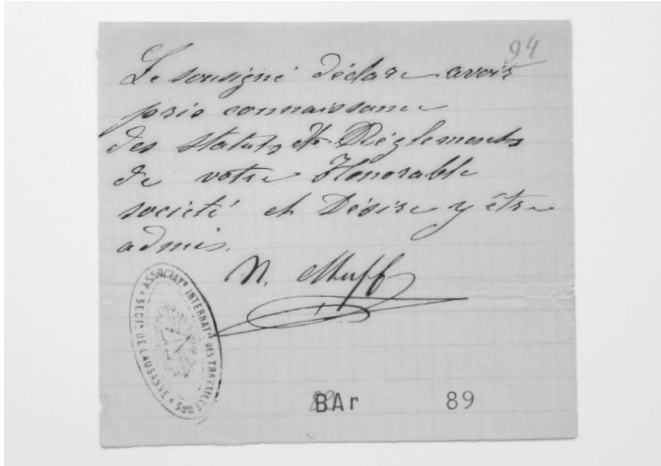 94
Le sousigné déclare avoir
pris connaissance
des Statuts et Réglements
de votre Honorable
société et Désire y être
admis.
N. Muff
ASSOCIAT. INTERNAT. DES TRAVAILLEURS
SECT. DE LAUSANNE
BAr 89